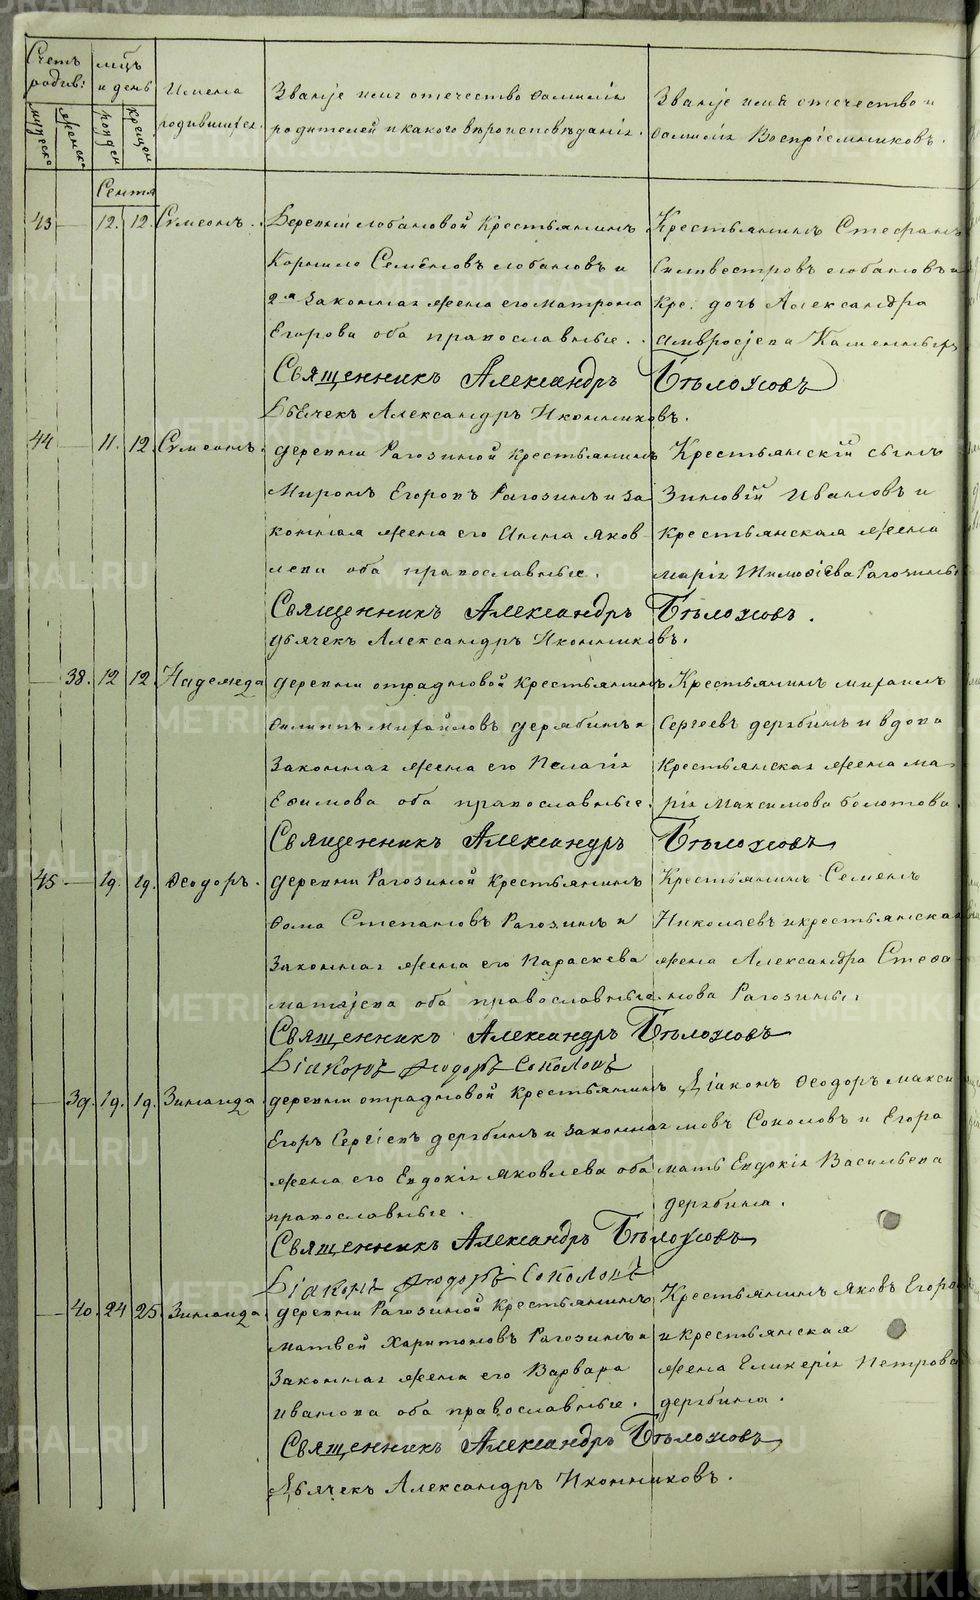 Счетъ родив:
мужеска
женска
мѣць и день
рожден
крещен
Имена родившихся.
Званіе имя отечество фамилія
родителей и какого вѣроисповѣданія.
Званіе имя отечество и
фамилія Воспріемниковъ.
Сентя
43 — 12. 12. Сѵмеонъ.
Деревни Лобановой Крестьянинъ
Корнило Семеновъ Лобановъ и
2я законная жена его Матрона
Егорова оба православные.
Крестьянинъ Стефанъ
Силвестровъ Лобановъ и
Кре. дочь Александра
Амвросіева
Священникъ Александръ Бѣлоусовъ
Дьячекъ Александръ Иконниковъ.
44 — 11. 12. Сѵмеонъ.
деревни Рагозиной Крестьянинъ
Миронъ Егоровъ Рагозинъ и за
конная жена его Анна Яков
лева оба православные.
Крестьянскій сынъ
Зиновій Ивановъ и
Крестьянская жена
Марія Тимофіева Рагозины
Священникъ Александръ Бѣлоусовъ.
Дьячекъ Александръ Иконниковъ.
— 38. 12 12. Надежда
деревни отрадновой Крестьянинъ
Филиппъ Михайловъ Дерябинъ и
Законная жена его Пелагія
Ефимова оба православные.
Крестьянинъ Михаилъ
Сергеевъ дерябинъ и вдова
Крестьянская жена Ма-
рія Максимова Болотова.
Священникъ Александръ Бѣлоусовъ
45 — 19. 19. Ѳеодоръ.
деревни Рагозиной Крестьянинъ
Фома Степановъ Рагозинъ и
Законная жена его Параскева
Матѳіева оба православные.
Крестьянинъ Семенъ
Николаевъ и крестьянская
жена Александра Стефа
нова Рагозины
Священникъ Александръ Бѣлоусовъ
Діаконъ Ѳеодоръ Соколовъ
— 39. 19. 19. Зинаида.
деревни отрадновой Крестьянинъ
Егоръ Сергіевъ дерябинъ и законная
жена его Евдокія Яковлева оба
православные.
Діаконъ Ѳеодоръ Макси
мовъ Соколовъ и Егора
мать Евдокія Васильева
дерябина.
Священникъ Александръ Бѣлоусовъ
Діаконъ Ѳеодоръ Соколовъ
— 40. 24 25. Зинаида.
деревни Рагозиной Крестьянинъ
Матвей Харитоновъ Рагозинъ и
Законная жена его Варвара
Иванова оба православные.
Крестьянинъ Яковъ Егоровъ
и крестьянская
жена Гликерія Петрова
дерябина.
Священникъ Александръ Бѣлоусовъ
Дьячекъ Александръ Иконниковъ.
METRIKI.GASO-URAL.RU